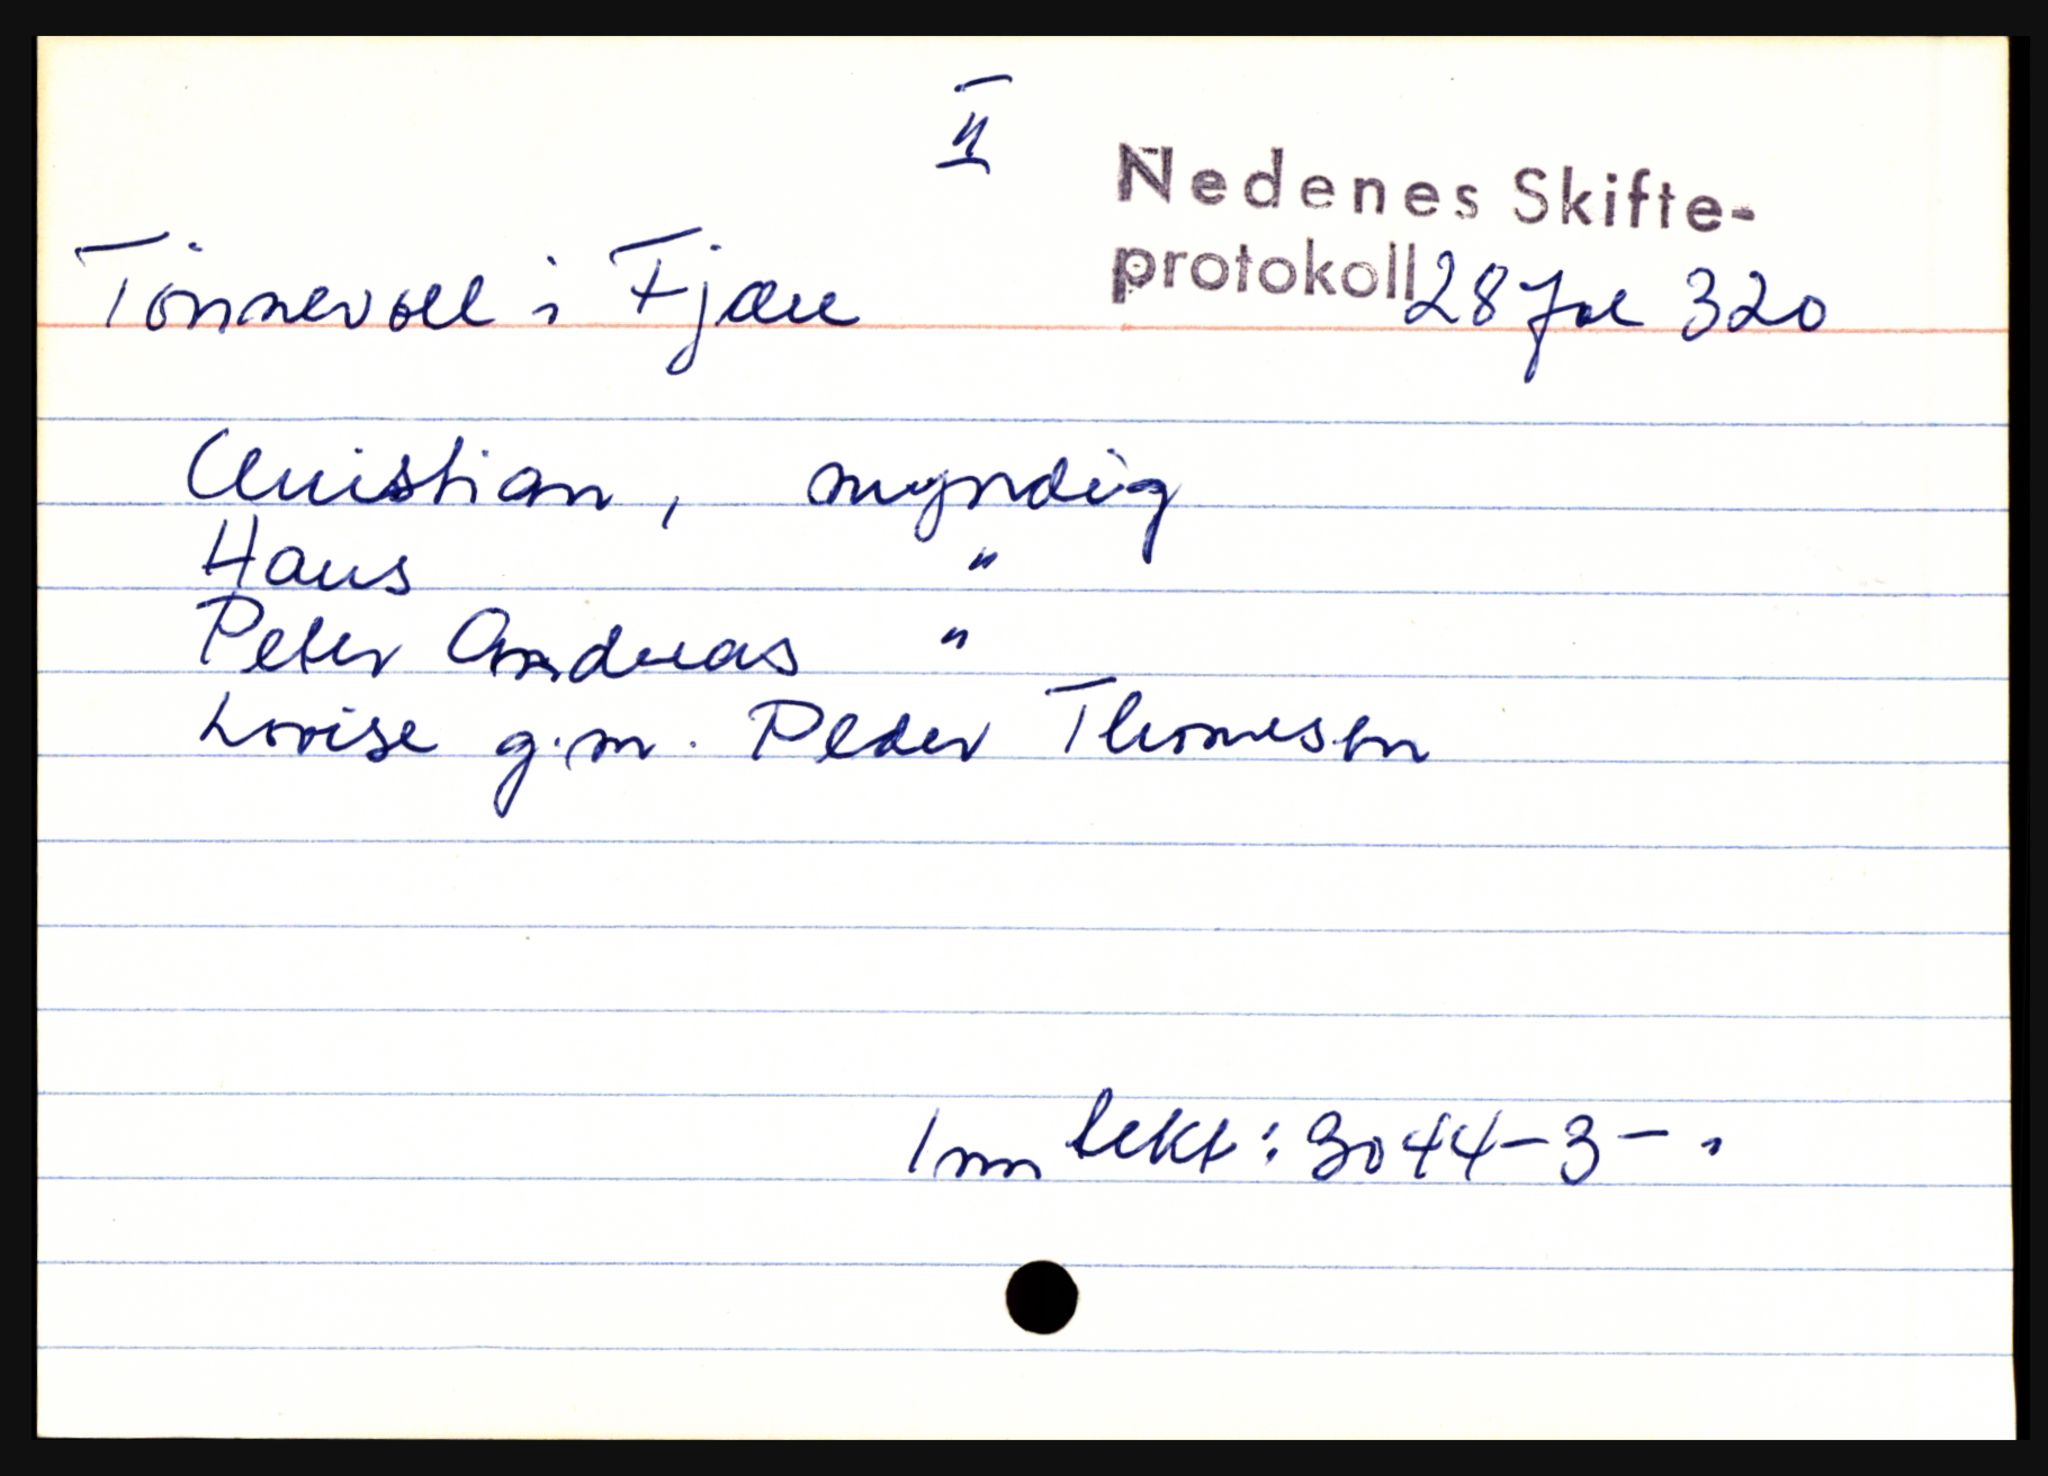 II
Nedenes Skifte-
protokoll 28 fol 320
Tönnevoll i Fjære
Christian, myndig
Hans "
Peter Andreas "
Lovise g.m. Peder Thomesen
Inntekt: 3044-3-